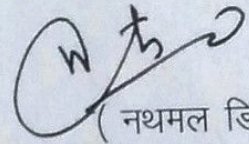 ( नथमल डि